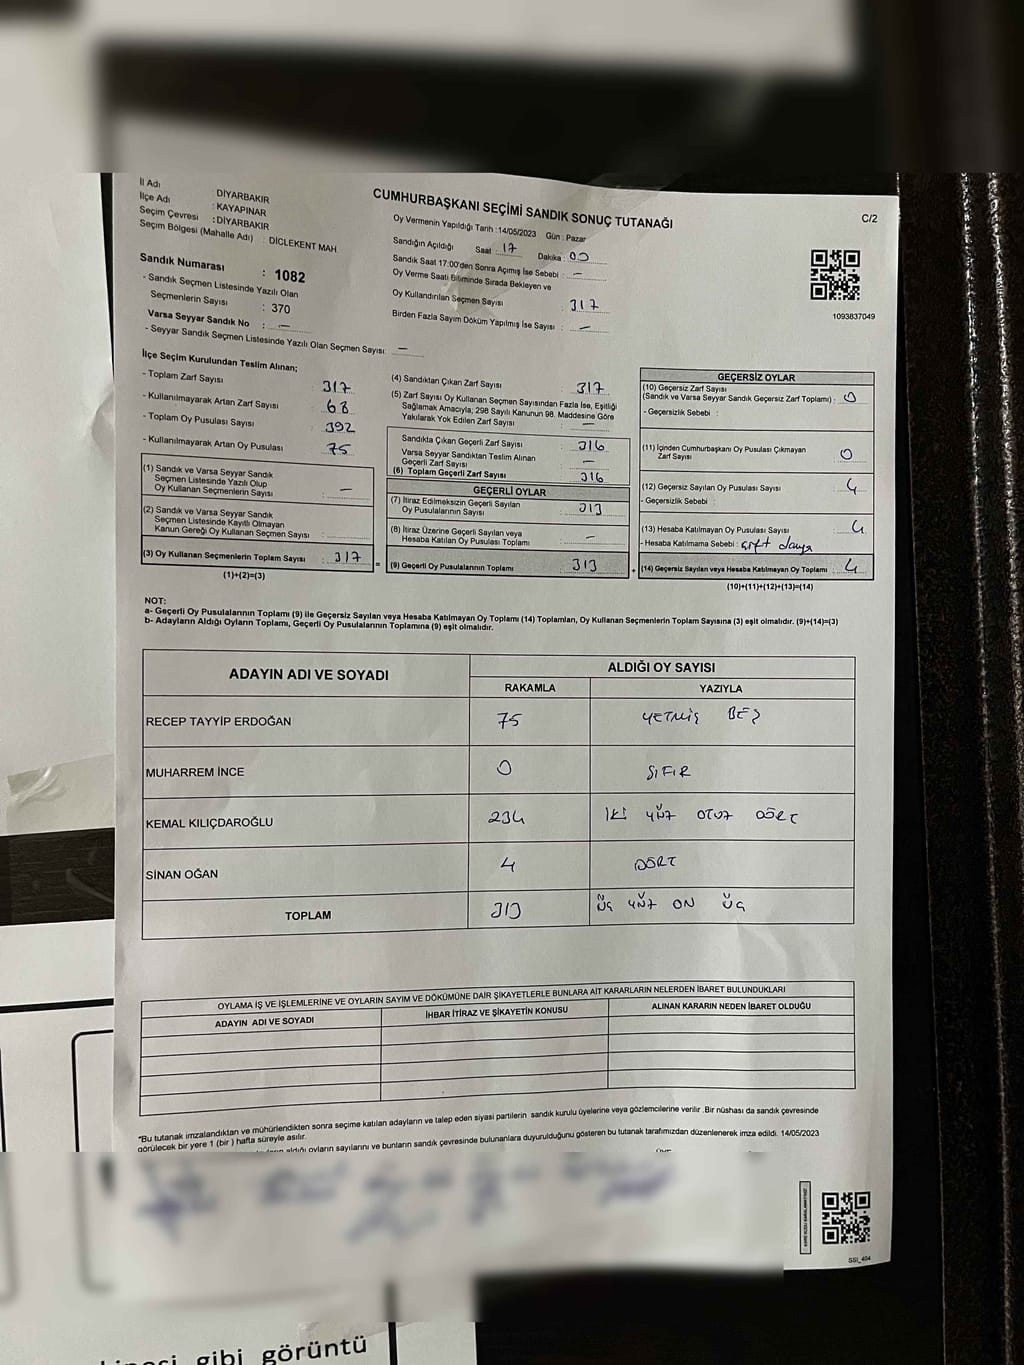 İl Adı : DİYARBAKIR
İlçe Adı : KAYAPINAR
Seçim Çevresi : DİYARBAKIR
Seçim Bölgesi (Mahalle Adı) : DİCLEKENT MAH
Sandık Numarası : 1082
- Sandık Seçmen Listesinde Yazılı Olan
Seçmenlerin Sayısı : 370
Varsa Seyyar Sandık No : —
- Seyyar Sandık Seçmen Listesinde Yazılı Olan Seçmen Sayısı: —
CUMHURBAŞKANI SEÇİMİ SANDIK SONUÇ TUTANAĞI
C/2
Oy Vermenin Yapıldığı Tarih : 14/05/2023 Gün : Pazar
Sandığın Açıldığı Saat : 17 Dakika : 00
Sandık Saat 17:00'den Sonra Açımış İse Sebebi : —
Oy Verme Saati Bitiminde Sırada Bekleyen ve
Oy Kullandırılan Seçmen Sayısı : 317
Birden Fazla Sayım Döküm Yapılmış İse Sayısı : —
1093837049
İlçe Seçim Kurulundan Teslim Alınan;
- Toplam Zarf Sayısı : 317
- Kullanılmayarak Artan Zarf Sayısı : 68
- Toplam Oy Pusulası Sayısı : 392
- Kullanılmayarak Artan Oy Pusulası : 75
(1) Sandık ve Varsa Seyyar Sandık
Seçmen Listesinde Yazılı Olup
Oy Kullanan Seçmenlerin Sayısı : —
(2) Sandık ve Varsa Seyyar Sandık
Seçmen Listesinde Kayıtlı Olmayan
Kanun Gereği Oy Kullanan Seçmen Sayısı :
(3) Oy Kullanan Seçmenlerin Toplam Sayısı : 317
(1)+(2)=(3)
(4) Sandıktan Çıkan Zarf Sayısı : 317
(5) Zarf Sayısı Oy Kullanan Seçmen Sayısından Fazla İse, Eşitliği
Sağlamak Amacıyla; 298 Sayılı Kanunun 98. Maddesine Göre
Yakılarak Yok Edilen Zarf Sayısı : —
Sandıkta Çıkan Geçerli Zarf Sayısı : 316
Varsa Seyyar Sandıktan Teslim Alınan
Geçerli Zarf Sayısı : —
(6) Toplam Geçerli Zarf Sayısı : 316
GEÇERLİ OYLAR
(7) İtiraz Edilmeksizin Geçerli Sayılan
Oy Pusulalarının Sayısı : 313
(8) İtiraz Üzerine Geçerli Sayılan veya
Hesaba Katılan Oy Pusulası Toplamı : —
(9) Geçerli Oy Pusulalarının Toplamı : 313
GEÇERSİZ OYLAR
(10) Geçersiz Zarf Sayısı
(Sandık ve Varsa Seyyar Sandık Geçersiz Zarf Toplamı) : 0
- Geçersizlik Sebebi :
(11) İçinden Cumhurbaşkanı Oy Pusulası Çıkmayan
Zarf Sayısı : 0
(12) Geçersiz Sayılan Oy Pusulası Sayısı : 4
- Geçersizlik Sebebi :
(13) Hesaba Katılmayan Oy Pusulası Sayısı : 4
- Hesaba Katılmama Sebebi : çift
(14) Geçersiz Sayılan veya Hesaba Katılmayan Oy Toplamı : 4
(10)+(11)+(12)+(13)=(14)
NOT:
a- Geçerli Oy Pusulalarının Toplamı (9) ile Geçersiz Sayılan veya Hesaba Katılmayan Oy Toplamı (14) Toplamları, Oy Kullanan Seçmenlerin Toplam Sayısına (3) eşit olmalıdır. (9)+(14)=(3)
b- Adayların Aldığı Oyların Toplamı, Geçerli Oy Pusulalarının Toplamına (9) eşit olmalıdır.
ADAYIN ADI VE SOYADI ALDIĞI OY SAYISI
RAKAMLA YAZIYLA
RECEP TAYYİP ERDOĞAN 75 YETMİŞ BEŞ
MUHARREM İNCE 0 SIFIR
KEMAL KILIÇDAROĞLU 234 İKİ YÜZ OTUZ DÖRT
SİNAN OĞAN 4 DÖRT
TOPLAM 313 ÜÇ YÜZ ON ÜÇ
OYLAMA İŞ VE İŞLEMLERİNE VE OYLARIN SAYIM VE DÖKÜMÜNE DAİR ŞİKAYETLERLE BUNLARA AİT KARARLARIN NELERDEN İBARET BULUNDUKLARI
ADAYIN ADI VE SOYADI İHBAR İTİRAZ VE ŞİKAYETİN KONUSU ALINAN KARARIN NEDEN İBARET OLDUĞU
"Bu tutanak imzalandıktan ve mühürlendikten sonra seçime katılan adayların ve talep eden siyasi partilerin sandık kurulu üyelerine veya gözlemcilerine verilir .Bir nüshası da sandık çevresinde
görülecek bir yere 1 (bir ) hafta süreyle asılır.
aldığı oyların sayılarını ve bunların sandık çevresinde bulunanlara duyurulduğunu gösteren bu tutanak tarafımızdan düzenlenerek imza edildi. 14/05/2023
SSI_404
gibi görüntü